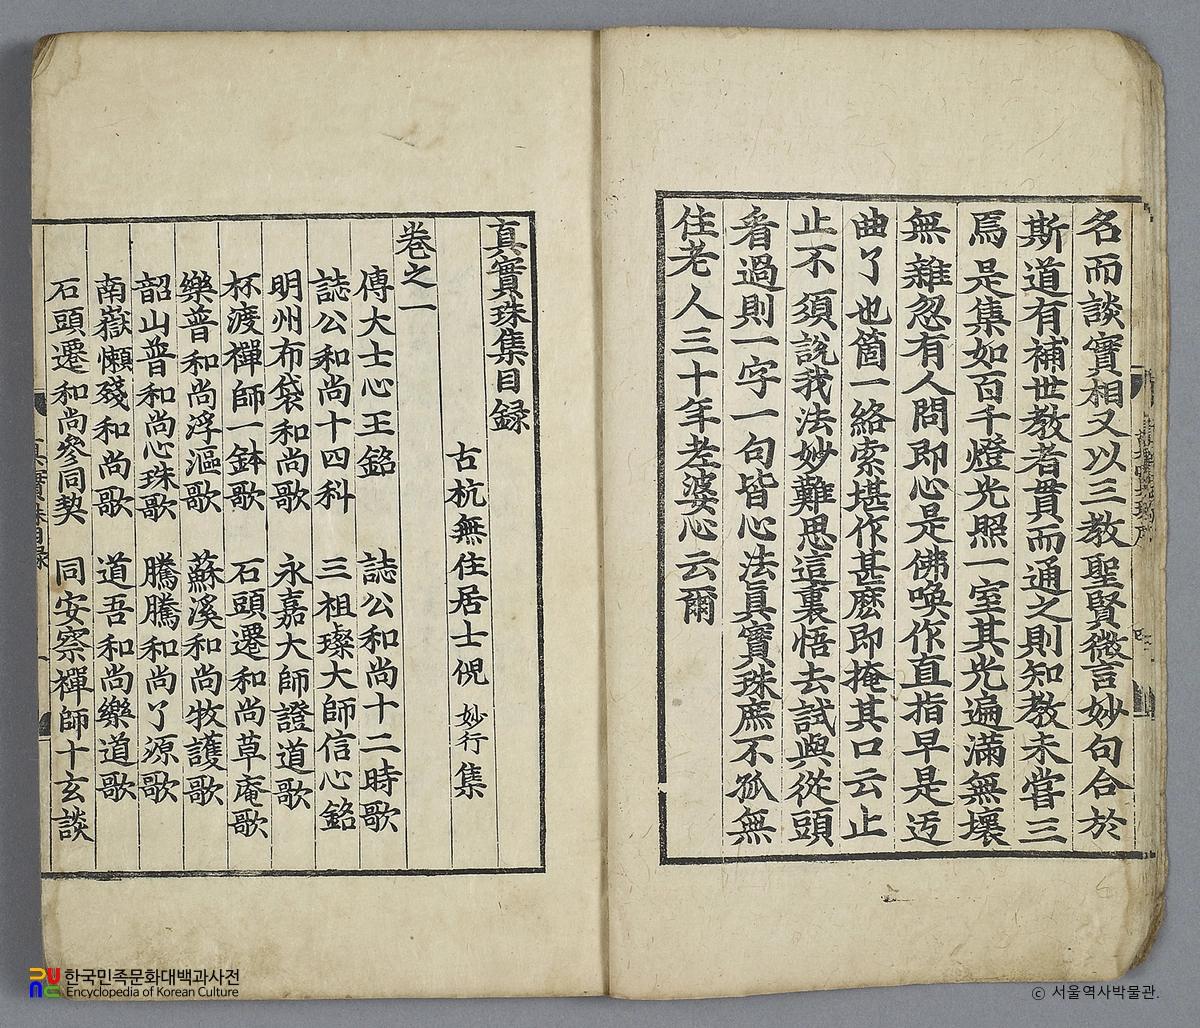 名而談實相又以三教聖賢微言妙句合於
斯道有補世教者貫而通之則知教未嘗三
焉是集如百千燈光照一室其光遍滿無壞
無雜忽有人問即心是佛喚作直指早是迃
曲了也箇一絡索堪作甚麽即掩其口云止
止不須說我法妙難思這裏悟去試與從頭
看過則一字一句皆心法眞實珠庶不孤無
住老人三十年老婆心云爾
真實珠集目録
古杭無住居士倪 妙行 集
卷之一
傅大士心王銘 誌公和尚十二時歌
誌公和尚十四科 三祖璨大師信心銘
明州布袋和尚歌 永嘉大師證道歌
杯渡禪師一鉢歌 石頭遷和尚草庵歌
樂普和尚浮漚歌 蘇溪和尚牧護歌
韶山普和尚心珠歌 騰騰和尚了源歌
南嶽懶殘和尚歌 道吾和尚樂道歌
石頭遷和尚參同契 同安察禪師十玄談
한국민족문화대백과사전
Encyclopedia of Korean Culture
ⓒ 서울역사박물관.